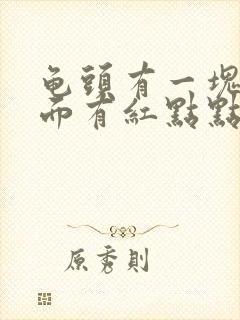 龟頭有一塊
而有紅點點
原秀則